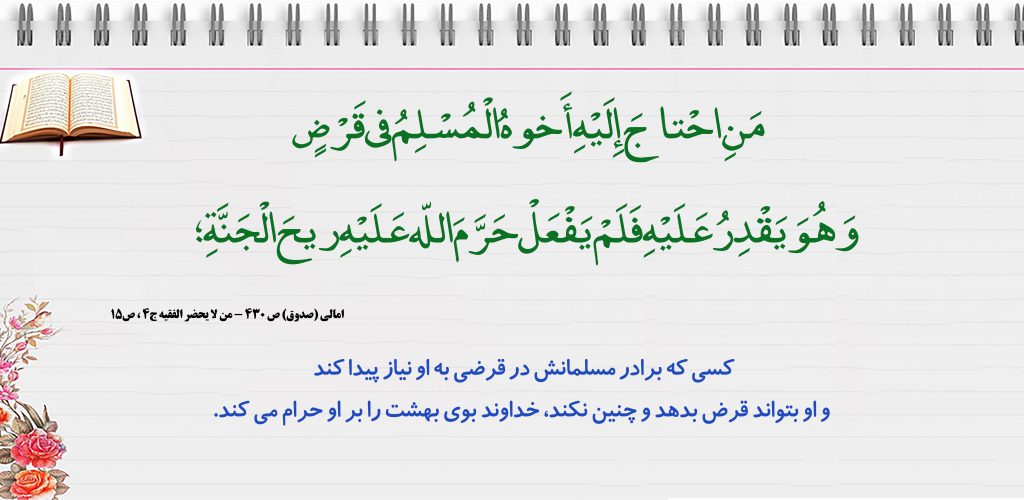 مَنِ احْتاجَ إِلَيْهِ أَخوهُ الْمُسْلِمُ فى قَرْضٍ
وَ هُوَ يَقْدِرُ عَلَيْهِ فَلَمْ يَفْعَلْ حَرَّمَ اللّه عَلَيْهِ ريحَ الْجَنَّةِ؛
امالی (صدوق) ص ۴۳۰ – من لا یحضر الفقیه ج۴ ، ص۱۵
کسی که برادر مسلمانش در قرضی به او نیاز پیدا کند
و او بتواند قرض بدهد و چنین نکند، خداوند بوی بهشت را بر او حرام می کند.